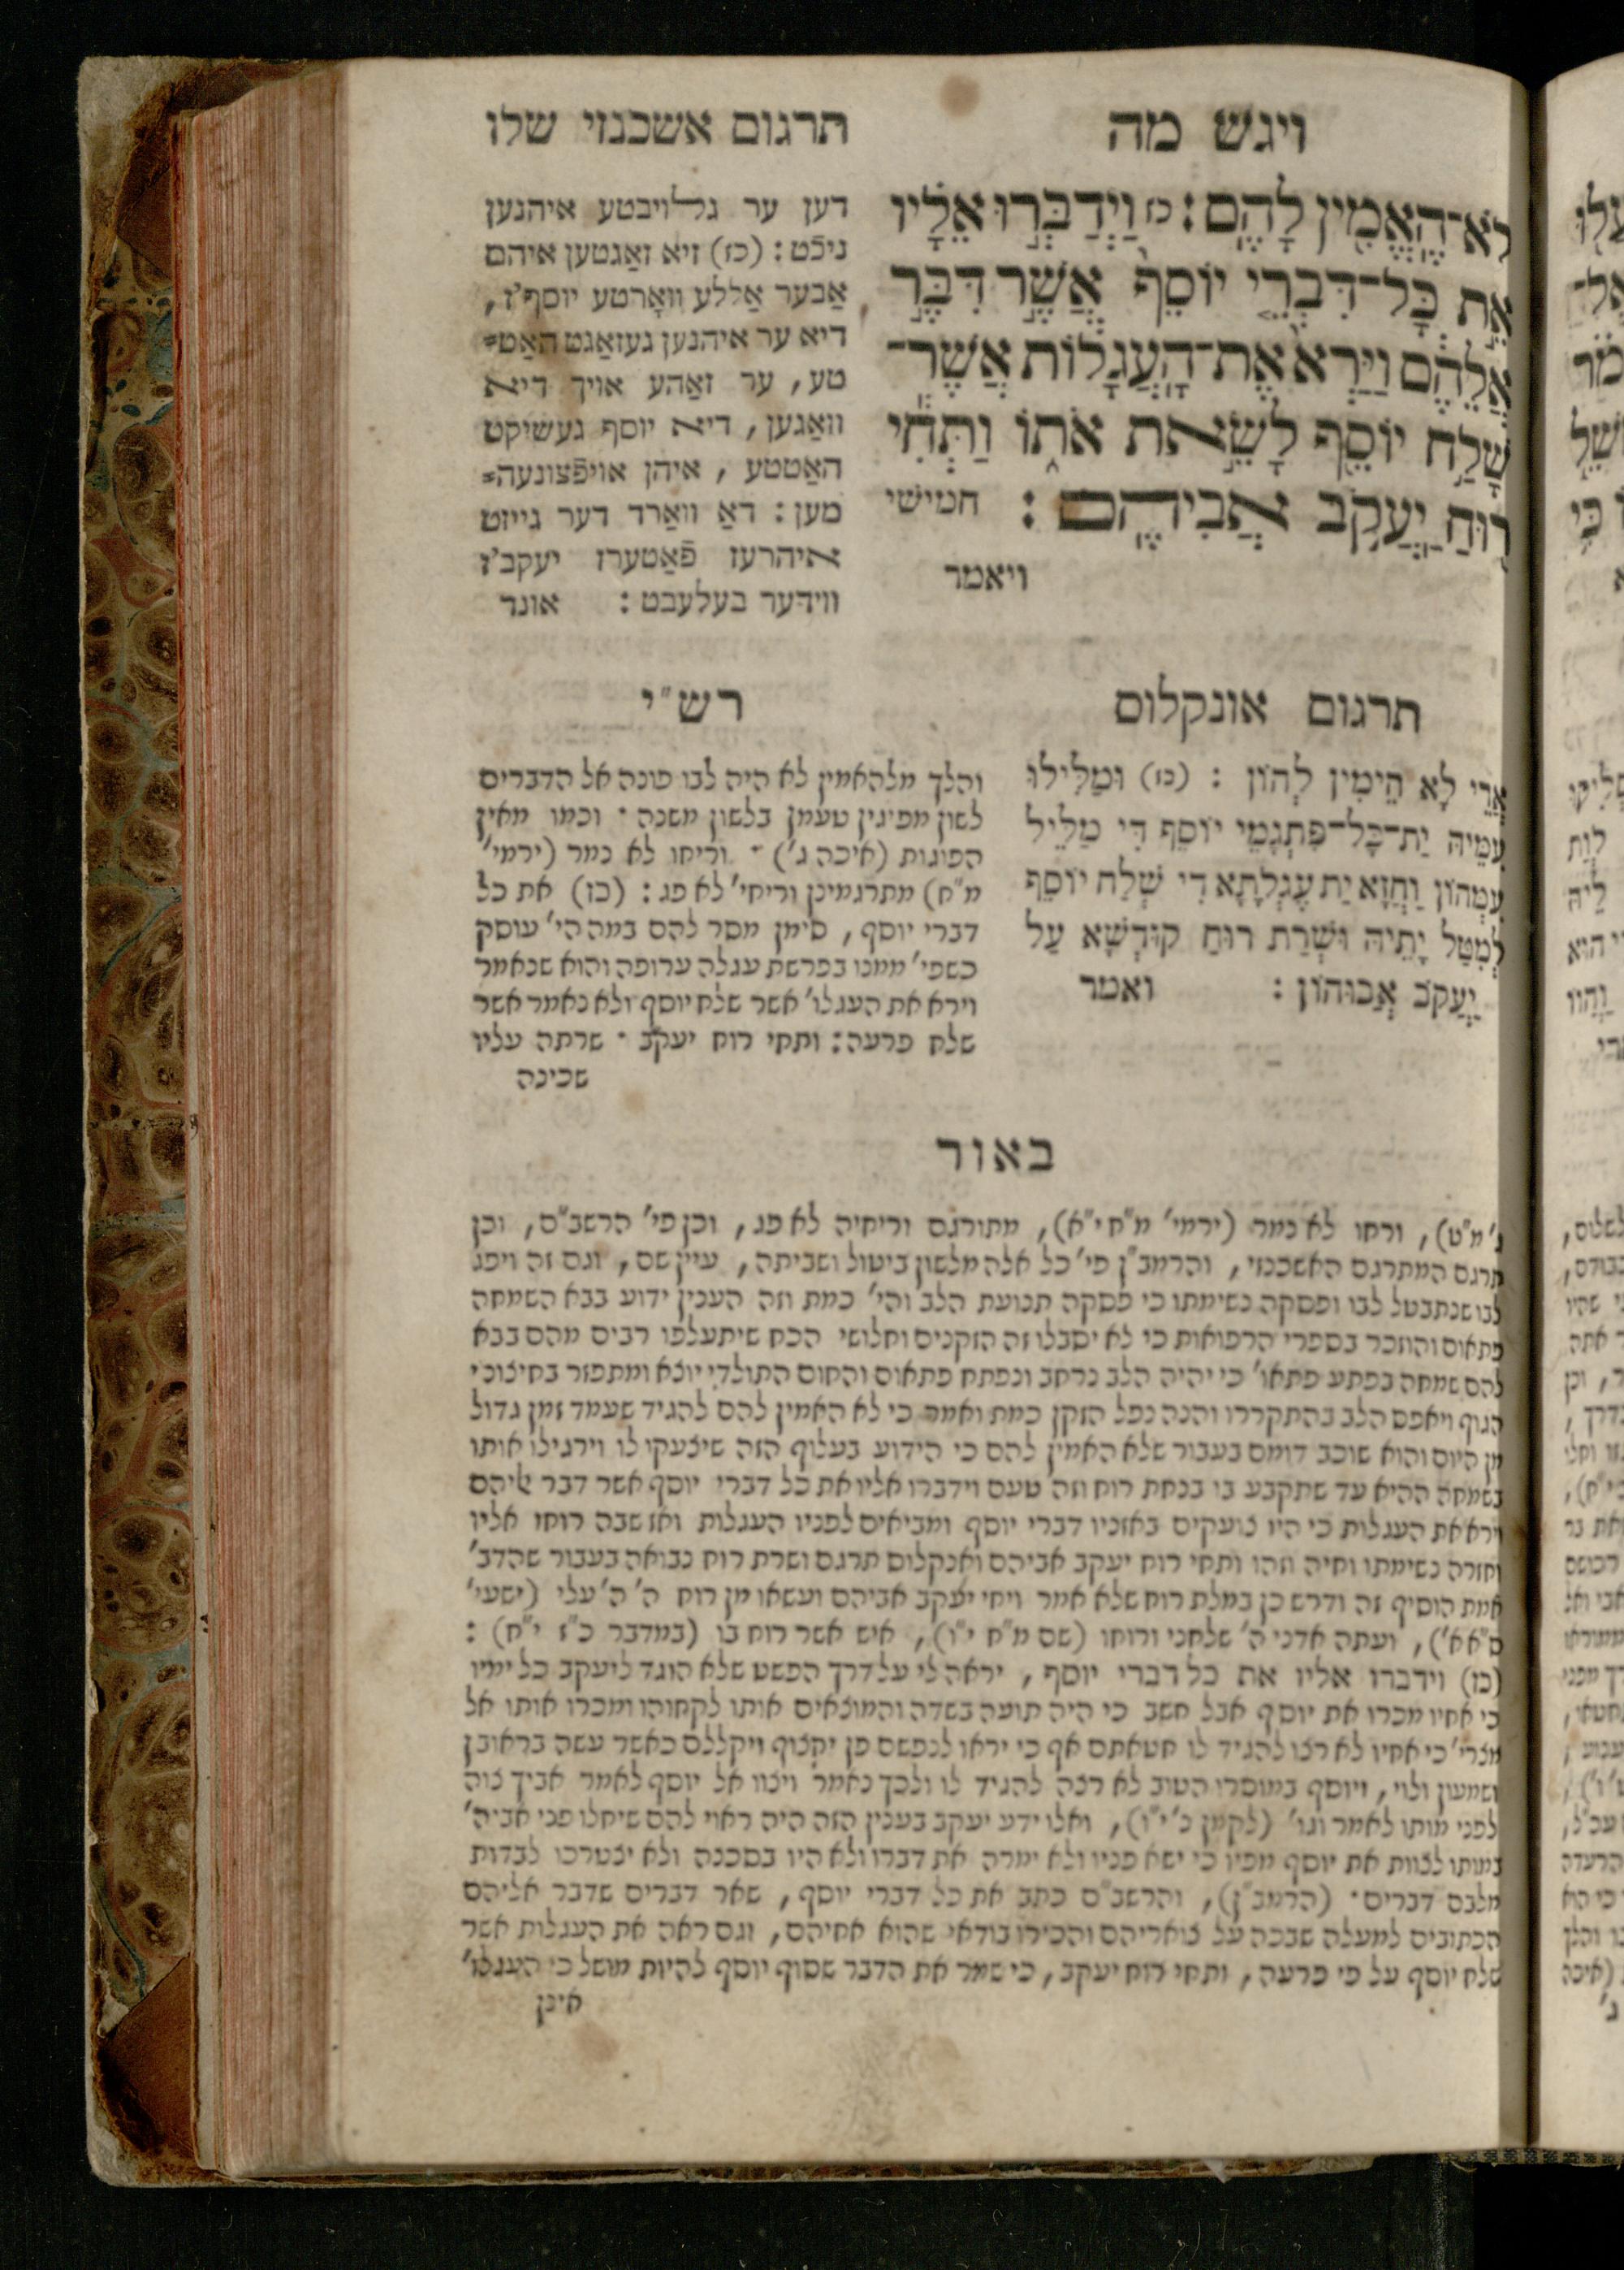 ויגש מה
תרגום אשכנזי שלו
לֹא־הֶאֱמִין לָהֶם: כז וַיְדַבְּרוּ אֵלָיו
אֵת כָּל־דִּבְרֵי יוֹסֵף אֲשֶׁר דִּבֶּר
אֲלֵהֶם וַיַּרְא אֶת־הָעֲגָלוֹת אֲשֶׁר־
שָׁלַח יוֹסֵף לָשֵׂאת אֹתוֹ וַתְּחִי
רוּחַ יַעֲקֹב אֲבִיהֶם: חמישי
ויאמר
דען ער גלויבטע איהנען
ניכֿט: (כז) זיא זאַגטען איהם
אַבער אַללע וואָרטע יוסף'ז,
דיא ער איהנען געזאַגט האַט=
טע, ער זאַהע אויך דיא
וואַגען, דיא יוסף געשיקט
האַטטע, איהן אויפֿצונעה=
מען: דאַ וואַרד דער גייזט
איהרעז פֿאַטערז יעקב'ז
ווידער בעלעבט: אונד
תרגום אונקלוס
אֲרֵי לָא הֵימִין לְהוֹן: (כז) וּמַלִּילוּ
עִמֵּיהּ יַת־כָּל־פִּתְגָמֵי יוֹסֵף דִּי מַלֵּיל
עִמְּהוֹן וַחֲזָא יַת עֶגְלָתָא דִי שְׁלַח יוֹסֵף
לְמִטַּל יָתֵיהּ וּשְׁרַת רוּחַ קוּדְשָׁא עַל
יַעֲקֹב אֲבוּהוֹן: ואמר
רש"י
והלך מלהאמין לא היה לבו פונה אל הדברים
לשון מפיגין טעמן בלשון משנה · וכמו מאין
הפוגות (איכה ג') · וריחו לא נמר (ירמי'
מ"ח) מתרגמינן וריחי' לא פג: (כז) את כל
דברי יוסף, סימן מסר להם במה הי' עוסק
כשפי' ממנו בפרשת עגלה ערופה והוא שנאמר
וירא את העגלו' אשר שלח יוסף ולא נאמר אשר
שלח פרעה: ותחי רוח יעקב · שרתה עליו
שכינה
באור
ג' מ"ט), ורחו לא נמר (ירמי' מ"ח י"א), מתורגם וריחיה לא פג, וכן פי' הרשב"ם, וכן
תרגם המתרגם האשכנזי, והרמב"ן פי' כל אלה מלשון ביטול ושביתה, עיין שם, וגם זה ויפג
לבו שנתבטל לבו ופסקה נשימתו כי פסקה תנועת הלב והי' כמת וזה הענין ידוע בבא השמחה
פתאום והוזכר בספרי הרפואות כי לא יסבלו זה הזקנים וחלושי הכח שיתעלפו רבים מהם בבא
להם שמחה בפתע פתאו' כי יהיה הלב נרחב ונפתח פתאום והחום התולדי יוצא ומתפזר בחיצוני
הגוף ויאפס הלב בהתקררו והנה נפל הזקן כמת ואמר כי לא האמין להם להגיד שעמד זמן גדול
מן היום והוא שוכב דומם בעבור שלא האמין להם כי הידוע בעלוף הזה שיצעקו לו וירגילו אותו
בשמחה ההיא עד שתקבע בו בנחת רוח וזה טעם וידברו אליו את כל דברי יוסף אשר דבר אליהם
וירא את העגלות כי היו צועקים באזניו דברי יוסף ומביאים לפניו העגלות ואז שבה רוחו אליו
וחזרה נשימתו וחיה וזהו ותחי רוח יעקב אביהם ואנקלום תרגם ושרת רוח נבואה בעבור שהדב'
אמת הוסיף זה ודרש כן במלת רוח שלא אמר ויחי יעקב אביהם ועשאו מן רוח ה' ה' עלי (ישעי'
ס"א א'), ועתה אדני ה' שלחני ורוחו (שם מ"ח י"ו), איש אשר רוח בו (במדבר כ"ז י"ח):
(כז) וידברו אליו את כל דברי יוסף, יראה לי על דרך הפשט שלא הוגד ליעקב כל ימיו
כי אחיו מכרו את יוסף אבל חשב כי היה תועה בשדה והמוצאים אותו לקחוהו ומכרו אותו אל
מצרי' כי אחיו לא רצו להגיד לו חטאתם אף כי יראו לנפשם פן יקצוף ויקללם כאשר עשה בראובן
ושמעון ולוי, ויוסף במוסרו הטוב לא רצה להגיד לו ולכך נאמר ויצוו אל יוסף לאמר אביך צוה
לפני מותו לאמר וגו' (לקמן נ' י"ו), ואלו ידע יעקב בענין הזה היה ראוי להם שיחלו פני אביה'
במותו לצוות את יוסף מפיו כי ישא פניו ולא ימרה את דברו ולא היו בסכנה ולא יצטרכו לבדות
מלבם דברים· (הרמב"ן), והרשב"ם כתב את כל דברי יוסף, שאר דברים שדבר אליהם
הכתובים למעלה שבכה על צואריהם והכירו בודאי שהוא אחיהם, וגם ראה את העגלות אשר
שלח יוסף על פי פרעה, ותחי רוח יעקב, כי שמר את הדבר שסוף יוסף להיות מושל כי העגלו'
אינן